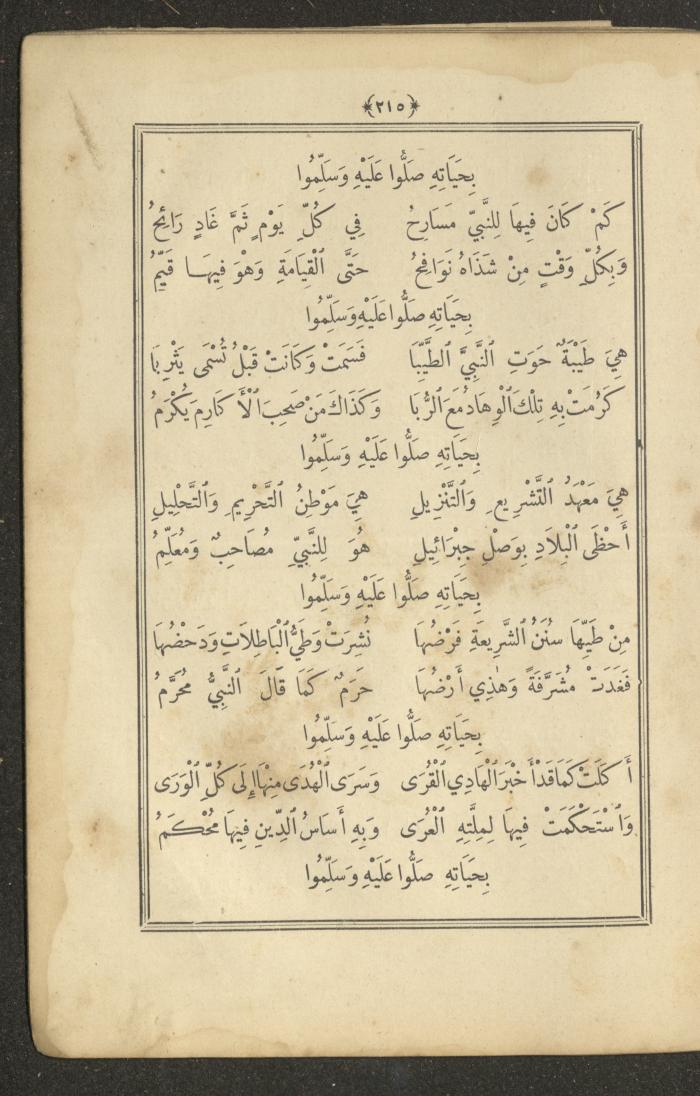 ﴿٢١٥﴾
بِحَيَاتِهِ صَلُّوا عَلَيْهِ وَسَلِّمُوا
كَمْ كَانَ فِيهَا لِلنَّبِيِّ مَسَارِحُ فِي كُلِّ يَوْمٍ ثَمَّ غَادٍ رَائِحُ
وَبِكُلِّ وَقْتٍ مِنْ شَذَاهُ نَوَافِحُ حَتَّى ٱلْقِيَامَةِ وَهْوَ فِيهَا قَيِّمُ
بِحَيَاتِهِ صَلُّوا عَلَيْهِ وَسَلِّمُوا
هِيَ طَيْبَةٌ حَوَتِ ٱلنَّبِيَّ ٱلطَّيِّبَا فَسَمَتْ وَكَانَتْ قَبْلُ تُسْمَى يَثْرِبَا
كَرُمَتْ بِهِ تِلْكَ ٱلْوِهَادُ مَعَ ٱلرُّبَا وَكَذَاكَ مَنْ صَحِبَ ٱلْأَكَارِمَ يَكْرُمُ
بِحَيَاتِهِ صَلُّوا عَلَيْهِ وَسَلِّمُوا
هِيَ مَعْهَدُ ٱلتَّشْرِيعِ وَٱلتَّنْزِيلِ هِيَ مَوْطِنُ ٱلتَّحْرِيمِ وَٱلتَّحْلِيلِ
أَحْظَى ٱلْبِلَادِ بِوَصْلِ جِبْرَائِيلِ هُوَ لِلنَّبِيِّ مُصَاحِبٌ وَمُعَلِّمُ
بِحَيَاتِهِ صَلُّوا عَلَيْهِ وَسَلِّمُوا
مِنْ طَيِّهَا سُنَنُ ٱلشَّرِيعَةِ فَرْضُهَا نُشِرَتْ وَطَيُّ ٱلْبَاطِلَاتِ وَدَحْضُهَا
فَغَدَتْ مُشَرَّفَةً وَهٰذِي أَرْضُهَا حَرَمٌ كَمَا قَالَ ٱلنَّبِيُّ مُحَرَّمُ
بِحَيَاتِهِ صَلُّوا عَلَيْهِ وَسَلِّمُوا
أَكَلَتْ كَمَا قَدْ أَخْبَرَ ٱلْهَادِي ٱلْقُرَى وَسَرَى ٱلْهُدَى مِنْهَا إِلَى كُلِّ ٱلْوَرَى
وَٱسْتَحْكَمَتْ فِيهَا لِمِلَّتِهِ ٱلْعُرَى وَبِهِ أَسَاسُ ٱلدِّينِ فِيهَا مُحْكَمُ
بِحَيَاتِهِ صَلُّوا عَلَيْهِ وَسَلِّمُوا